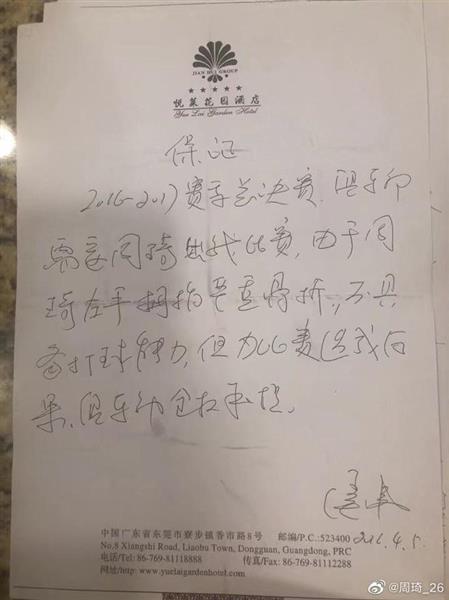 JIAN HUI GROUP
★★★★★
悦莱花园酒店
Yue Lai Garden Hotel
保证
2016-2017赛季总决赛，俱乐部
需要周琦出战比赛，由于周
琦左手拇指严重骨折，不具
备打球能力，但为比赛造成后
果，俱乐部全权承担。
2016.4.5.
中国广东省东莞市寮步镇香市路8号 邮编/P.C.:523400
No.8 Xiangshi Road, Liaobu Town, Dongguan, Guangdong, PRC
电话/Tel: 86-769-81118888 传真/Fax: 86-769-81112288
网址/http: www.yuelaigardenhotel.com
@周琦_26